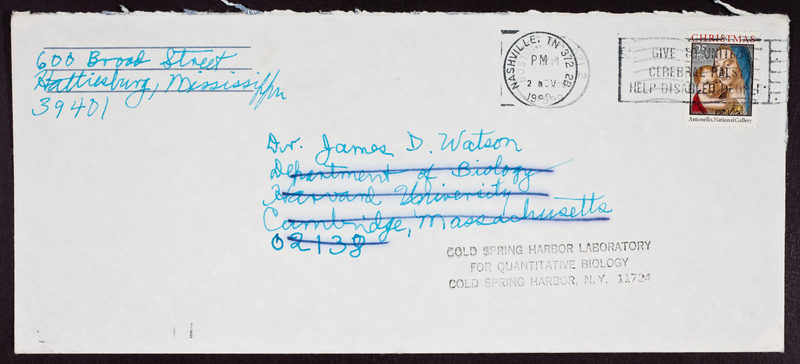 600 Broad Street
Hattiesburg, Mississippi
39401
NASHVILLE, TN 372
PM
2 NOV
CHRISTMAS
GIVE
CEREBRAL PALSY
HELP DISABLED PEOPLE
Antonello, National Gallery
Dr. James D. Watson
Department of Biology
Harvard University
Cambridge, Massachusetts
02138
COLD SPRING HARBOR LABORATORY
FOR QUANTITATIVE BIOLOGY
COLD SPRING HARBOR, N.Y. 11724